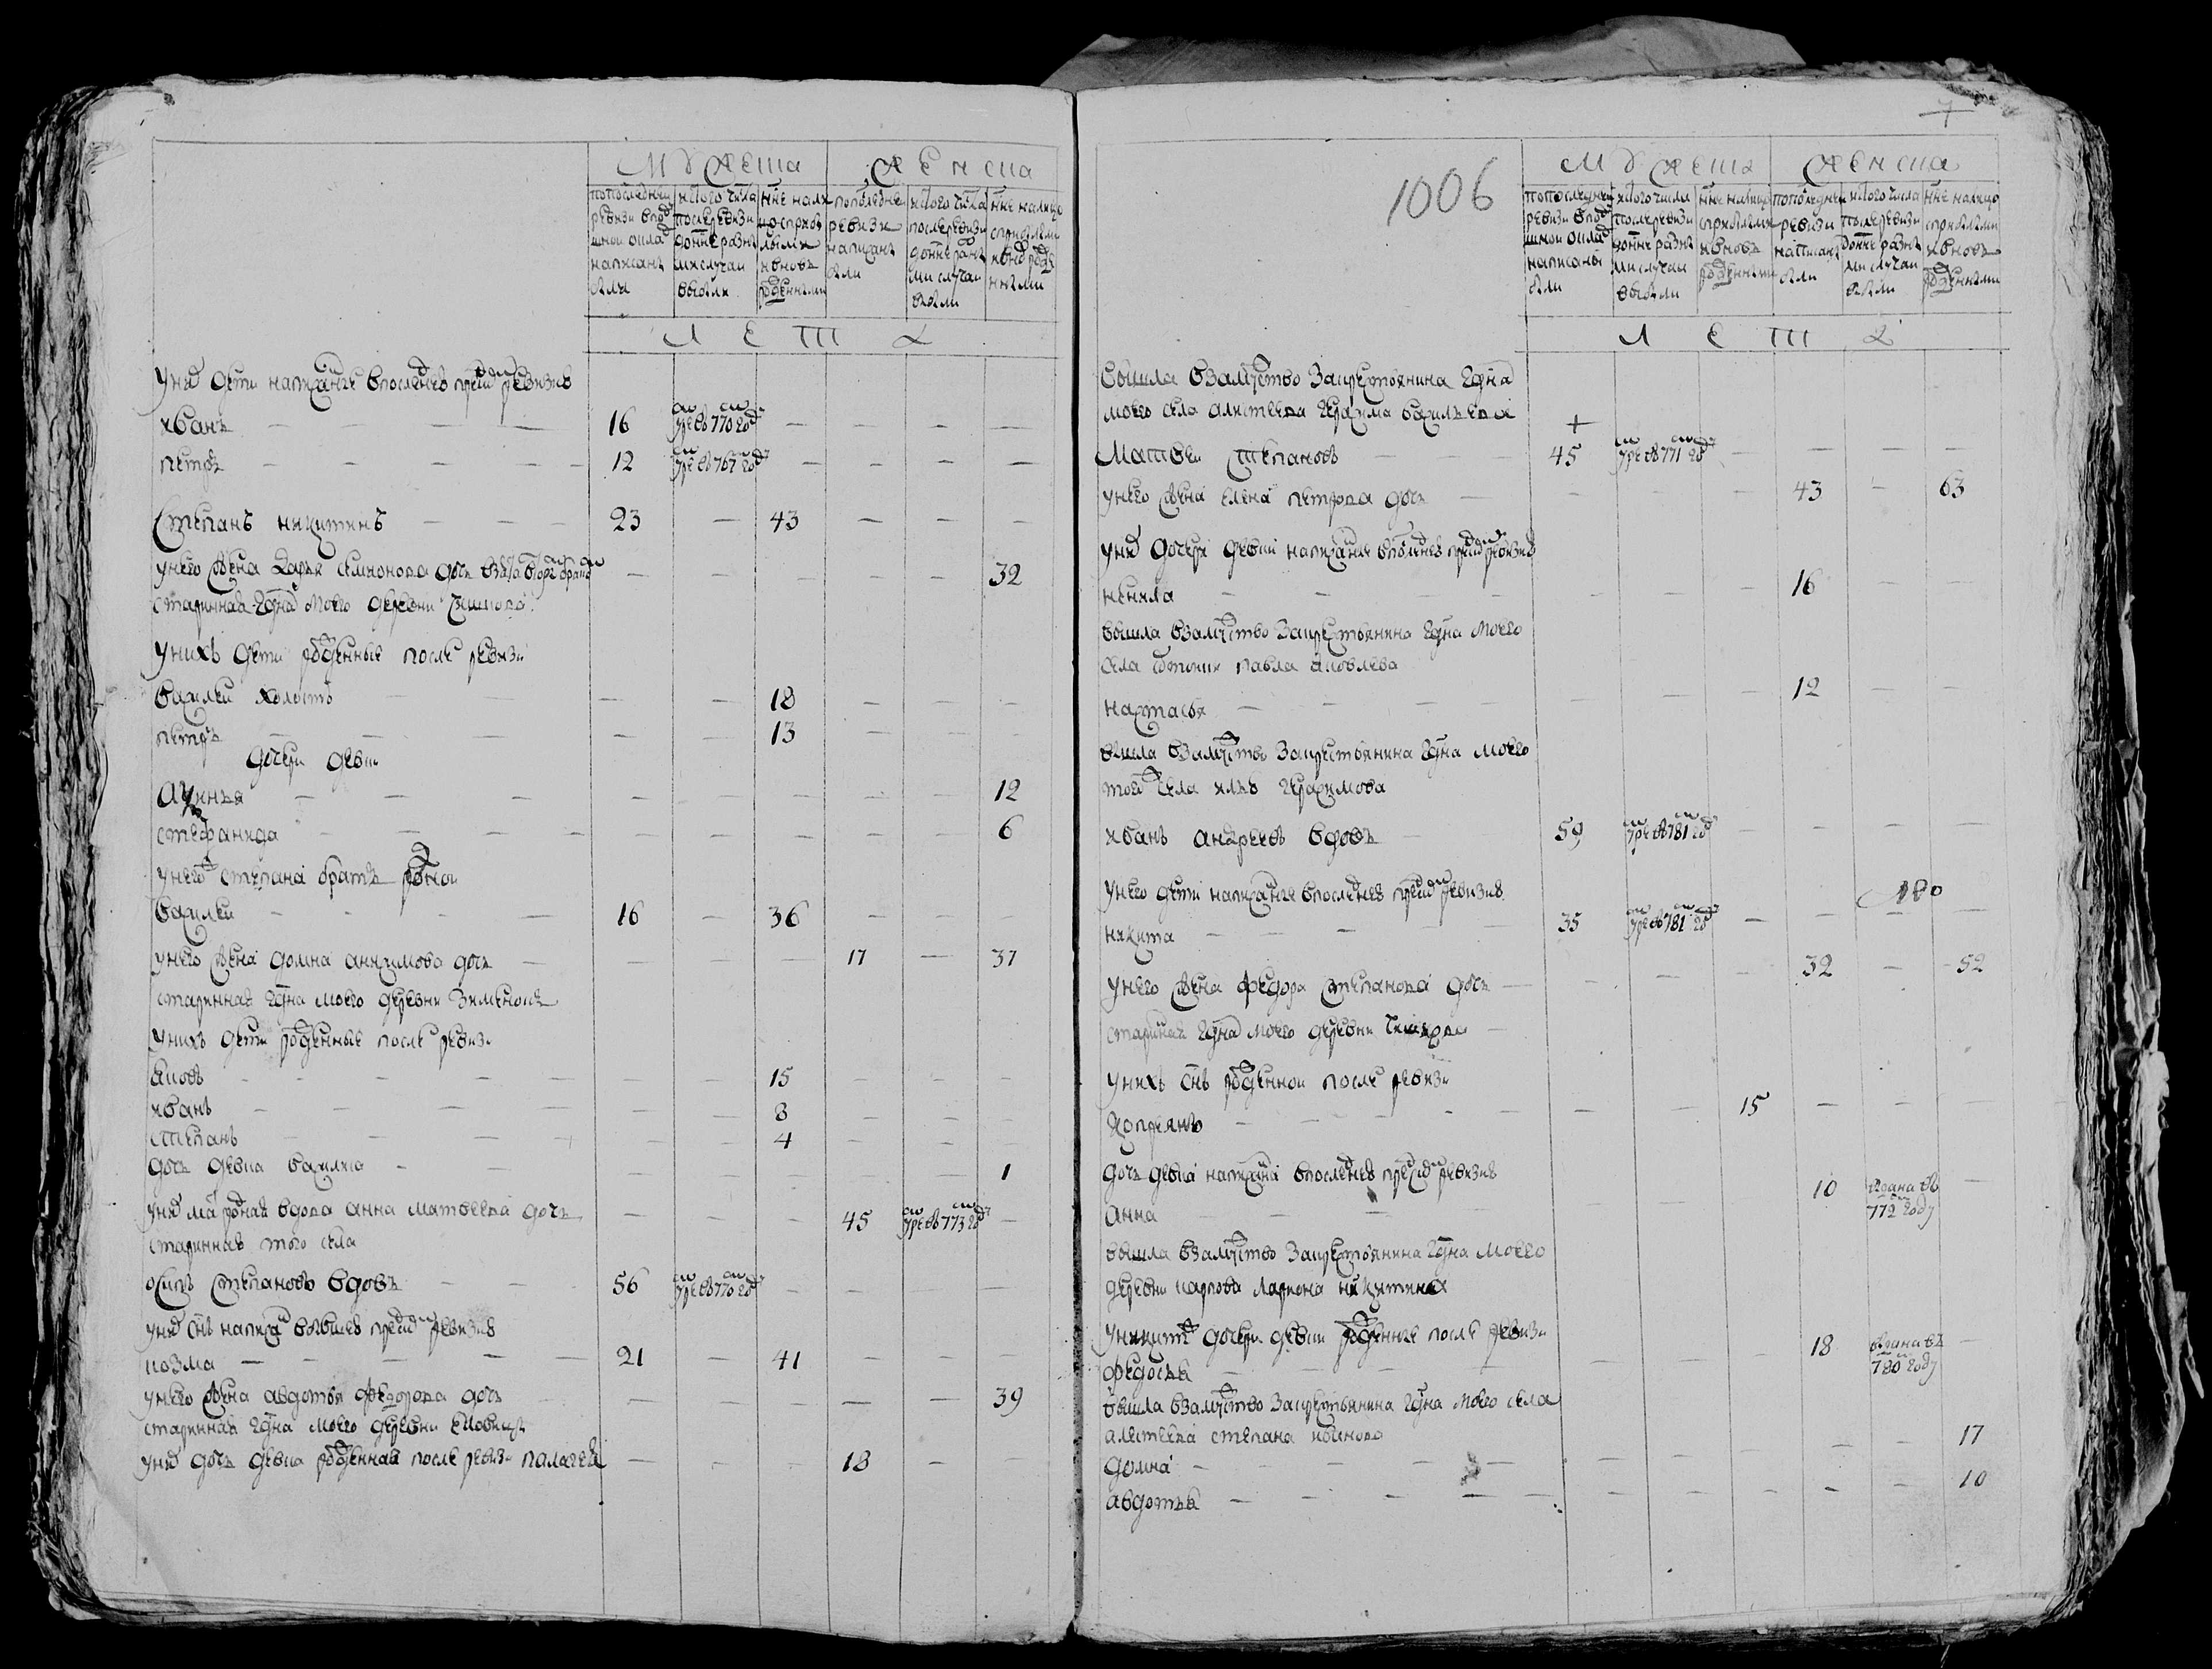 мужеска
женска
по последней ревизи в подушной оклад написаны были
ис того числа после ревизи до нне разными случаи выбыли
нне на лицо с прибылыми и вновь рожденными
по последней ревизи написаны были
ис того числа после ревизи до нне разными случаи выбыли
нне на лицо с прибылыми и вновь рожденными
л е т а
у них дети написанные в последней пред сей ревизиею
иванъ 16 умре въ 770 году
петръ 12 умре въ 767 году
степанъ никитинъ 23 — 43
у него жена дарья семионова дочь взята 32
стариннаа гдна моего деревни
у нихъ дети рожденные после ревизи
василеи холостъ 18
петръ 13
дочери девки
12
стефанида 6
у него степана братъ родной
василеи 16 — 36
у него жена домна анисимова дочь 17 — 37
стариннаа гдна моего деревни
у нихъ дети рожденные после ревизи
яковъ 15
иванъ 8
степанъ 4
дочь девка василиса 1
у них мать родная вдова анна матвеева дочь 45 умре въ 773 году
стариннаа того села
осипъ степановъ вдовъ 56 умре въ 770 году
у него снъ написанъ в бывшей пред сей ревизиею
козма 21 — 41
у него жена авдотья федорова дочь 39
стариннаа гдна моего деревни
у них дочь девка рожденная после ревизи палагея 18
7
1006
мужеска
женска
по последней ревизи в подушной оклад написаны были
ис того числа после ревизи до нне разными случаи выбыли
нне на лицо с прибылыми и вновь рожденными
по последней ревизи написаны были
ис того числа после ревизи до нне разными случаи выбыли
нне на лицо с прибылыми и вновь рожденными
л е т а
вышла в замужство за крестьянина гдна
моего села герасима васильева
+
матвеи степановъ 45 умре въ 771 году
у него жена елена петрова дочь 43 — 63
у них дочери девки написанные в последней пред сей ревизиею
ненила 16
вышла в замужство за крестьянина гдна моего
села павла яковлева
настасья 12
вышла в замужство за крестьянина гдна моего
того села герасимова
иванъ андреевъ вдовъ 59 умре въ 781 году
у него дети написанные в последней пред сей ревизиею
никита 35 умре въ 781 году
у него жена федора степанова дочь 32 — 52
стариннаа гдна моего деревни
у нихъ снъ рожденной после ревизи
киприянъ 15
дочь девка написана в последней пред сей ревизиею
анна 10 отдана въ 772 году
вышла в замужство за крестьянина гдна моего
деревни карпова лариона никитина
у никиты дочери девки рожденные после ревизи
федосья 18 отдана въ 780 году
вышла в замужство за крестьянина гдна моего села
степана
домна 17
авдотья 10